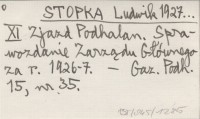 STOPKA Ludwik 1927...
XI Zjazd Podhalan. Spra-
wozdanie Zarządu Głównego
za r. 1926-7. — Gaz. Podh.
15, nr 35.